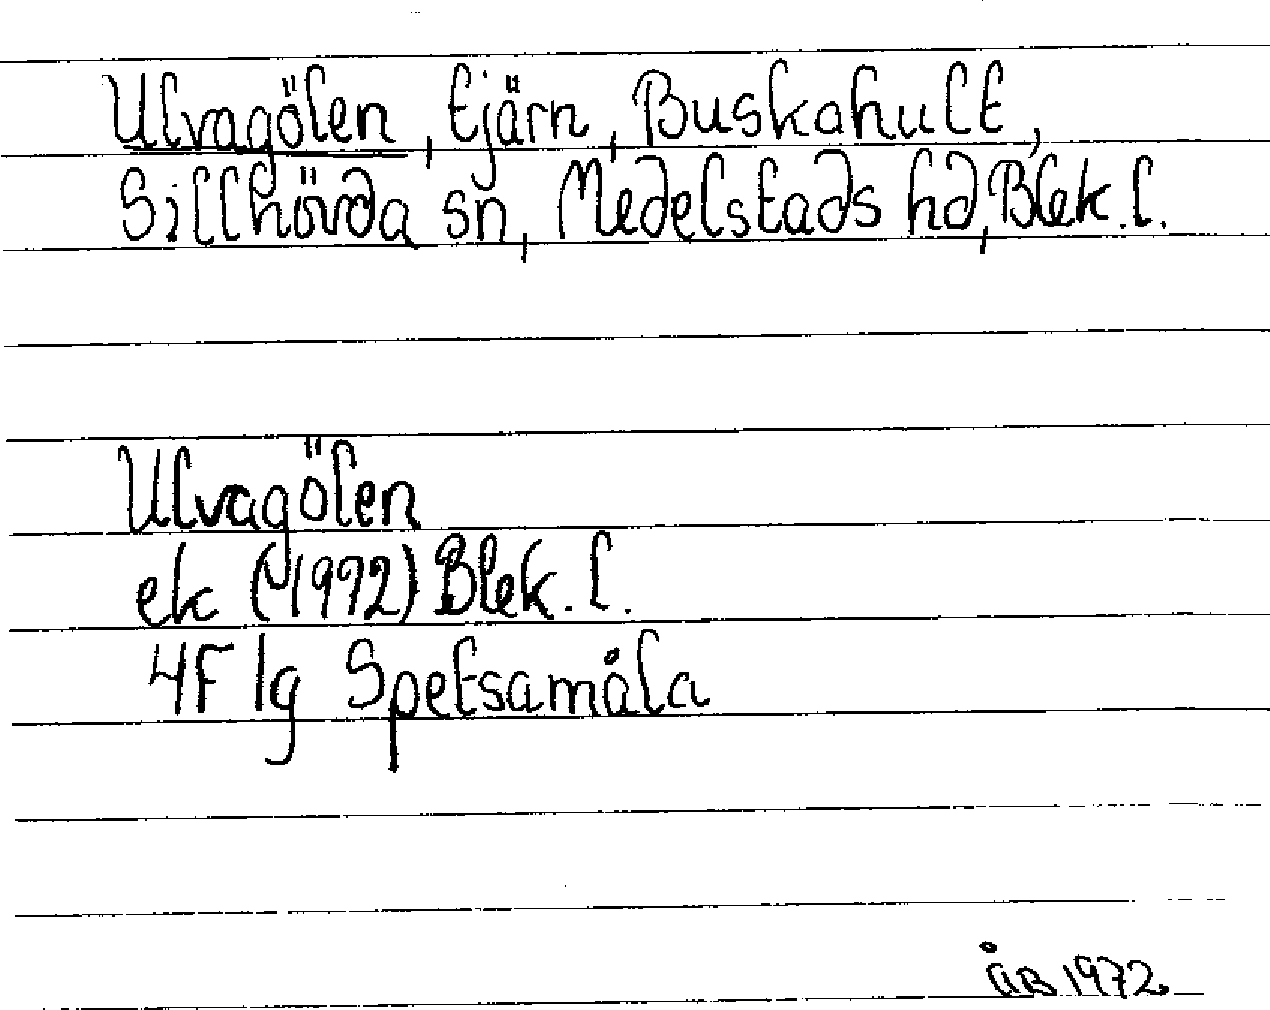 Ulvagölen, tjärn, Buskahult,
Sillhövda sn, Medelstads hd, Blek. l.
Ulvagölen
ek (1972) Blek. l.
4F 1g Spetsamåla
ÅB 1972